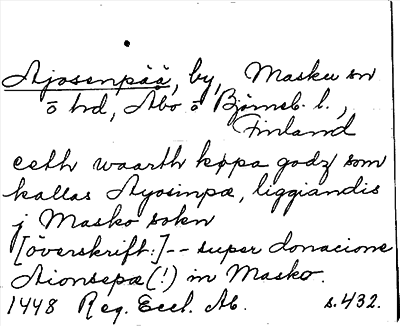 Ajosenpää, by, Masku sn
ö hd, Åbo ö Björneb. l.,
Finland
eeth waarth køpa godz som
kallas Ayosinpæ, liggiandis
j Masko sokn
[överskrift:]-- super donacione
Aionsepæ(!) in Masko.
1448 Reg. Eccl. Ab. s.432.